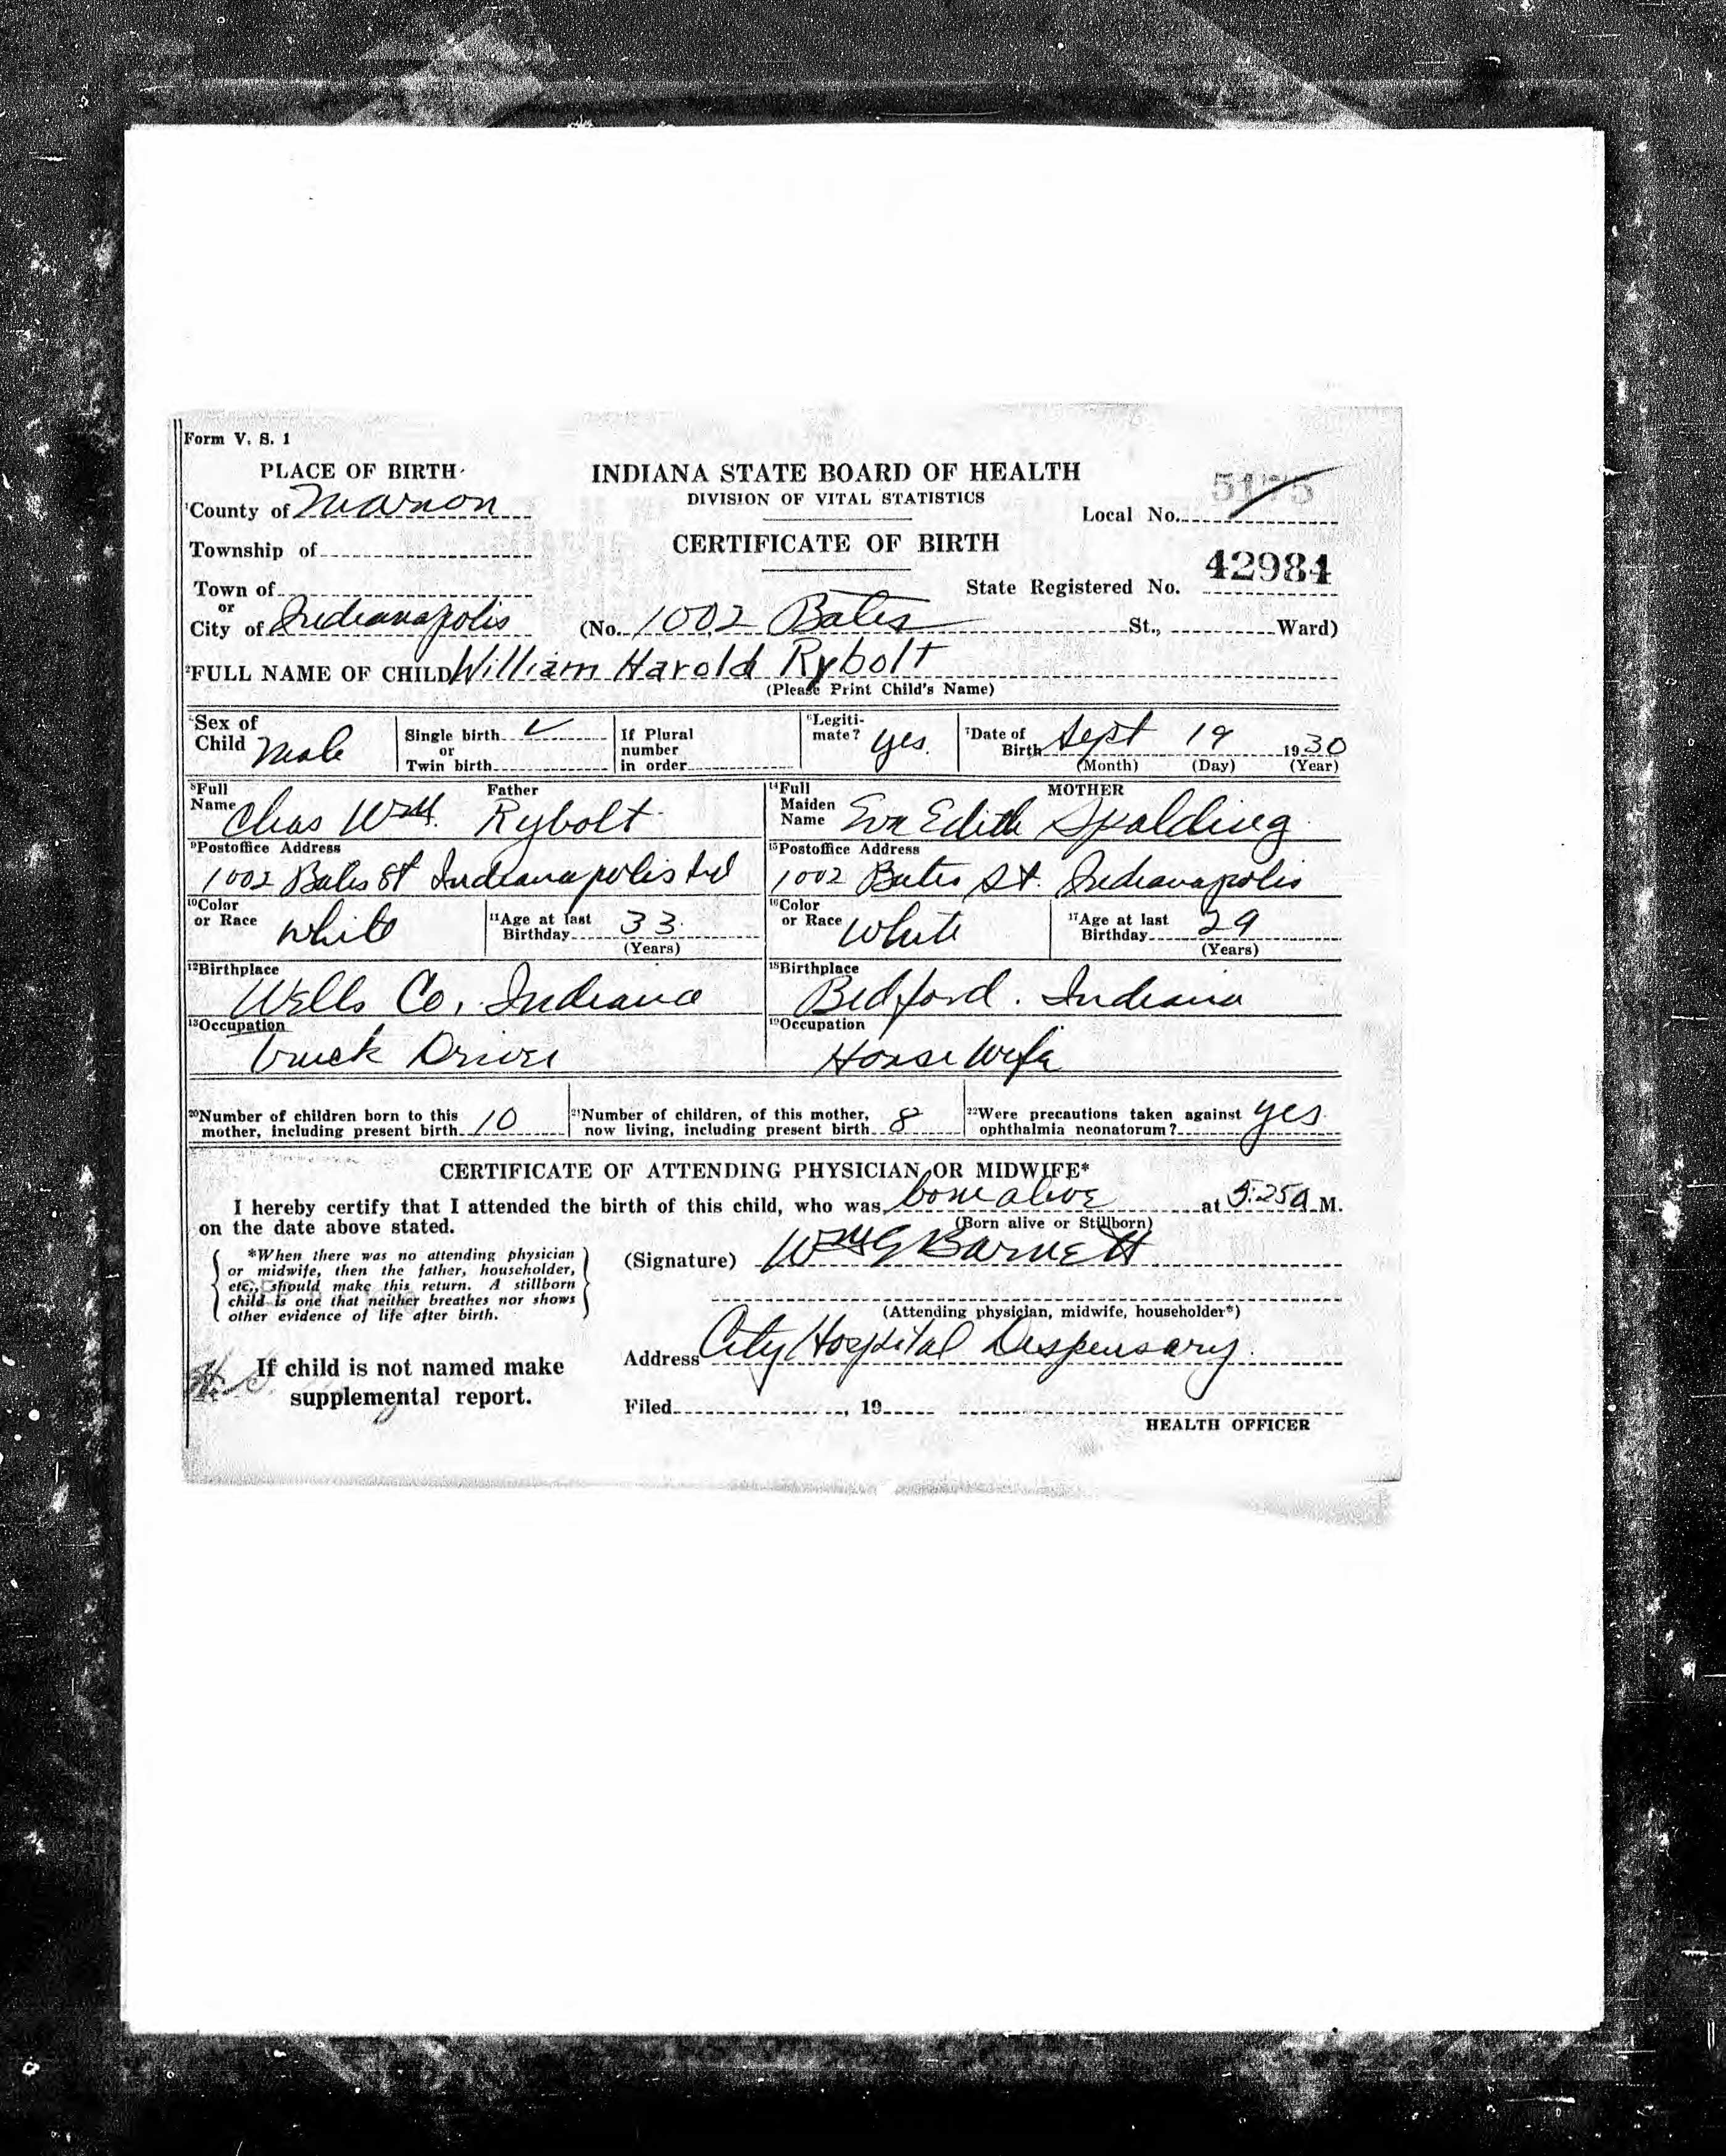 Form V. S. 1
PLACE OF BIRTH
INDIANA STATE BOARD OF HEALTH
DIVISION OF VITAL STATISTICS
1County of Marion
Local No. 5175
Township of
CERTIFICATE OF BIRTH
State Registered No. 42984
Town of
or
City of Indianapolis (No. 1002 Bates St., Ward)
2FULL NAME OF CHILD William Harold Rybolt
(Please Print Child's Name)
Sex of Child Male
Single birth ✓
or
Twin birth
If Plural number in order
6Legitimate? yes.
7Date of Birth Sept 19 1930
(Month) (Day) (Year)
8Full Name Father
Chas Wm. Rybolt
14Full Maiden Name MOTHER
Eva Edith Spalding
9Postoffice Address
1002 Bates St Indianapolis Ind
15Postoffice Address
1002 Bates St. Indianapolis
10Color or Race White
11Age at last Birthday 33
(Years)
16Color or Race White
17Age at last Birthday 29
(Years)
12Birthplace
Wells Co, Indiana
18Birthplace
Bedford. Indiana
13Occupation
Truck Driver
19Occupation
House Wife
20Number of children born to this mother, including present birth 10
21Number of children, of this mother, now living, including present birth 8
22Were precautions taken against ophthalmia neonatorum? yes
CERTIFICATE OF ATTENDING PHYSICIAN OR MIDWIFE*
I hereby certify that I attended the birth of this child, who was born alive at 5:25 a M.
on the date above stated.
(Born alive or Stillborn)
*When there was no attending physician
or midwife, then the father, householder,
etc., should make this return. A stillborn
child is one that neither breathes nor shows
other evidence of life after birth.
(Signature) Wm E Barnett
(Attending physician, midwife, householder*)
Address City Hospital Dispensary.
If child is not named make
supplemental report.
Filed , 19
HEALTH OFFICER